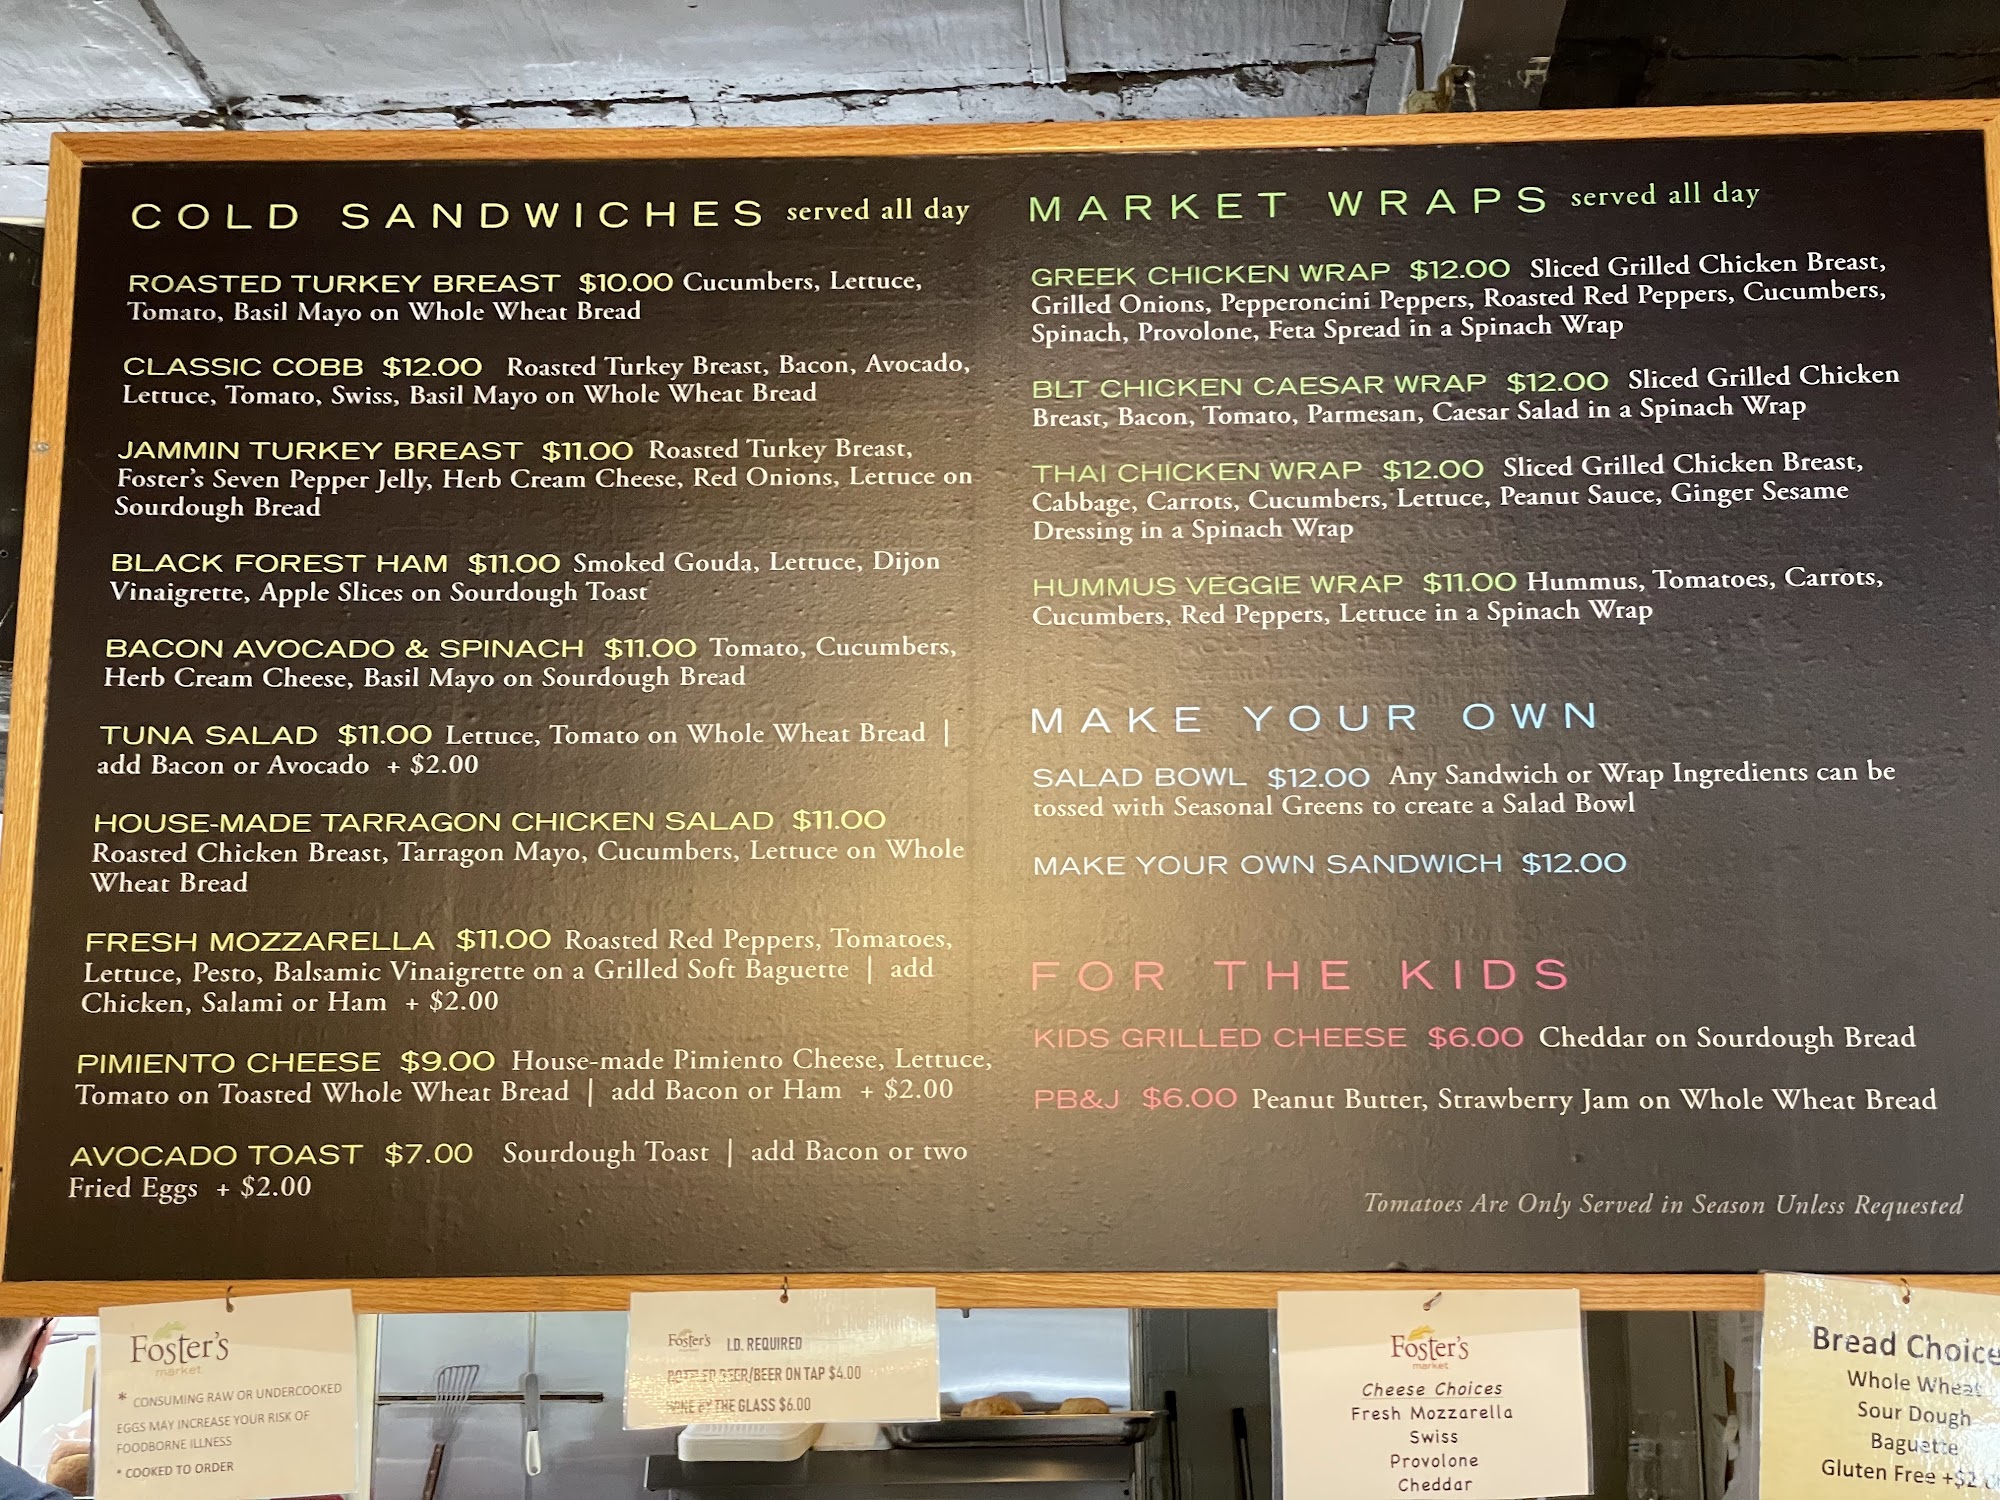 COLD SANDWICHES served all day
ROASTED TURKEY BREAST $10.00 Cucumbers, Lettuce,
Tomato, Basil Mayo on Whole Wheat Bread
CLASSIC COBB $12.00 Roasted Turkey Breast, Bacon, Avocado,
Lettuce, Tomato, Swiss, Basil Mayo on Whole Wheat Bread
JAMMIN TURKEY BREAST $11.00 Roasted Turkey Breast,
Foster's Seven Pepper Jelly, Herb Cream Cheese, Red Onions, Lettuce on
Sourdough Bread
BLACK FOREST HAM $11.00 Smoked Gouda, Lettuce, Dijon
Vinaigrette, Apple Slices on Sourdough Toast
BACON AVOCADO & SPINACH $11.00 Tomato, Cucumbers,
Herb Cream Cheese, Basil Mayo on Sourdough Bread
TUNA SALAD $11.00 Lettuce, Tomato on Whole Wheat Bread |
add Bacon or Avocado + $2.00
HOUSE-MADE TARRAGON CHICKEN SALAD $11.00
Roasted Chicken Breast, Tarragon Mayo, Cucumbers, Lettuce on Whole
Wheat Bread
FRESH MOZZARELLA $11.00 Roasted Red Peppers, Tomatoes,
Lettuce, Pesto, Balsamic Vinaigrette on a Grilled Soft Baguette | add
Chicken, Salami or Ham + $2.00
PIMIENTO CHEESE $9.00 House-made Pimiento Cheese, Lettuce,
Tomato on Toasted Whole Wheat Bread | add Bacon or Ham + $2.00
AVOCADO TOAST $7.00 Sourdough Toast | add Bacon or two
Fried Eggs + $2.00
MARKET WRAPS served all day
GREEK CHICKEN WRAP $12.00 Sliced Grilled Chicken Breast,
Grilled Onions, Pepperoncini Peppers, Roasted Red Peppers, Cucumbers,
Spinach, Provolone, Feta Spread in a Spinach Wrap
BLT CHICKEN CAESAR WRAP $12.00 Sliced Grilled Chicken
Breast, Bacon, Tomato, Parmesan, Caesar Salad in a Spinach Wrap
THAI CHICKEN WRAP $12.00 Sliced Grilled Chicken Breast,
Cabbage, Carrots, Cucumbers, Lettuce, Peanut Sauce, Ginger Sesame
Dressing in a Spinach Wrap
HUMMUS VEGGIE WRAP $11.00 Hummus, Tomatoes, Carrots,
Cucumbers, Red Peppers, Lettuce in a Spinach Wrap
MAKE YOUR OWN
SALAD BOWL $12.00 Any Sandwich or Wrap Ingredients can be
tossed with Seasonal Greens to create a Salad Bowl
MAKE YOUR OWN SANDWICH $12.00
FOR THE KIDS
KIDS GRILLED CHEESE $6.00 Cheddar on Sourdough Bread
PB&J $6.00 Peanut Butter, Strawberry Jam on Whole Wheat Bread
Tomatoes Are Only Served in Season Unless Requested
Foster's
market
* CONSUMING RAW OR UNDERCOOKED
EGGS MAY INCREASE YOUR RISK OF
FOODBORNE ILLNESS
* COOKED TO ORDER
Foster's I.D. REQUIRED
market
BOTTLED BEER/BEER ON TAP $4.00
WINE BY THE GLASS $6.00
Foster's
market
Cheese Choices
Fresh Mozzarella
Swiss
Provolone
Cheddar
Bread Choice
Whole Wheat
Sour Dough
Baguette
Gluten Free +$2